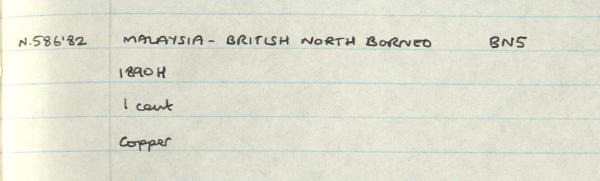 N.586'82 MALAYSIA - BRITISH NORTH BORNEO BN5
1890H
1 cent
Copper